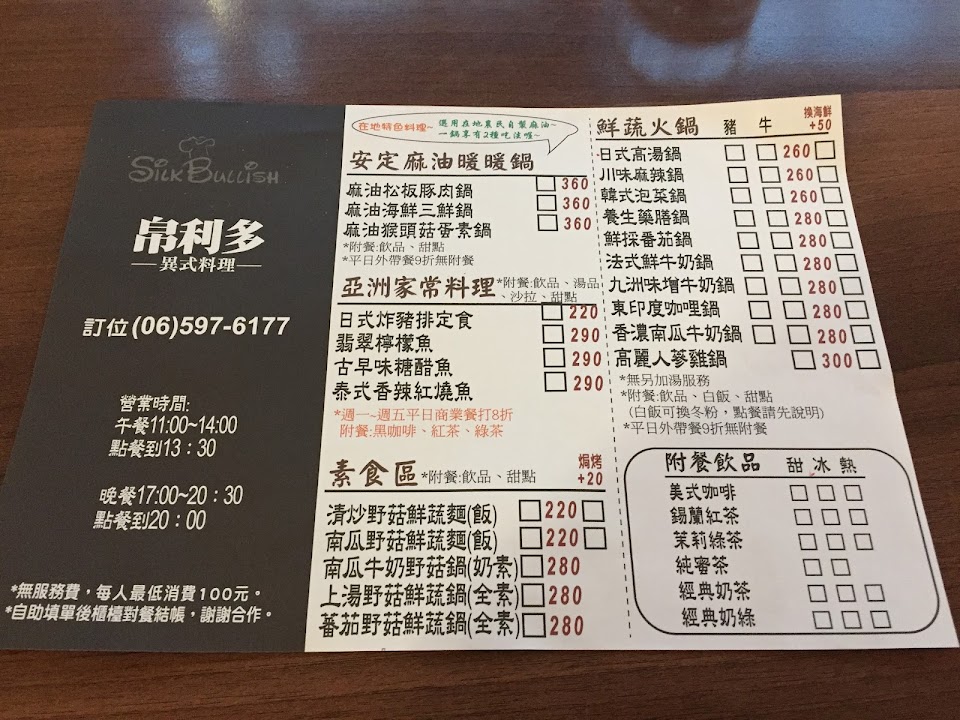 SILK BULLISH
帛利多
異式料理
訂位(06)597-6177
營業時間:
午餐11:00~14:00
點餐到13:30
晚餐17:00~20:30
點餐到20:00
*無服務費，每人最低消費100元。
*自助填單後櫃檯對餐結帳，謝謝合作。
在地特色料理~
選用在地農民自製麻油~
一鍋享有2種吃法喔~
安定麻油暖暖鍋
麻油松板豚肉鍋 360
麻油海鮮三鮮鍋 360
麻油猴頭菇蛋素鍋 360
*附餐:飲品、甜點
*平日外帶餐9折無附餐
亞洲家常料理 *附餐:飲品、湯品
、沙拉、甜點
日式炸豬排定食 220
翡翠檸檬魚 290
古早味糖醋魚 290
泰式香辣紅燒魚 290
*週一~週五平日商業餐打8折
附餐:黑咖啡、紅茶、綠茶
素食區 *附餐:飲品、甜點 焗烤
+20
清炒野菇鮮蔬麵(飯) 220
南瓜野菇鮮蔬麵(飯) 220
南瓜牛奶野菇鍋(奶素) 280
上湯野菇鮮蔬鍋(全素) 280
蕃茄野菇鮮蔬鍋(全素) 280
鮮蔬火鍋 豬 牛 換海鮮
+50
日式高湯鍋 260
川味麻辣鍋 260
韓式泡菜鍋 260
養生藥膳鍋 280
鮮採番茄鍋 280
法式鮮牛奶鍋 280
九洲味增牛奶鍋 280
東印度咖哩鍋 280
香濃南瓜牛奶鍋 280
高麗人蔘雞鍋 300
*無另加湯服務
*附餐:飲品、白飯、甜點
(白飯可換冬粉，點餐請先說明)
*平日外帶餐9折無附餐
附餐飲品 甜 冰 熱
美式咖啡
錫蘭紅茶
茉莉綠茶
純蜜茶
經典奶茶
經典奶綠